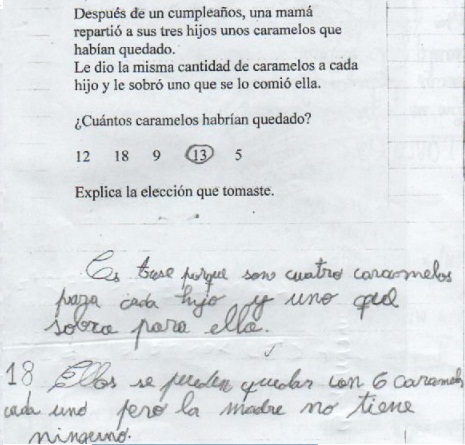 Después de un cumpleaños, una mamá
repartió a sus tres hijos unos caramelos que
habían quedado.
Le dio la misma cantidad de caramelos a cada
hijo y le sobró uno que se lo comió ella.
¿Cuántos caramelos habrían quedado?
12 18 9 13 5
Explica la elección que tomaste.
Es trese porque son cuatro caramelos
para cada hijo y uno que
sobra para ella.
18 Ellos se pueden quedar con 6 caramelos
cada uno pero la madre no tiene
ninguno.